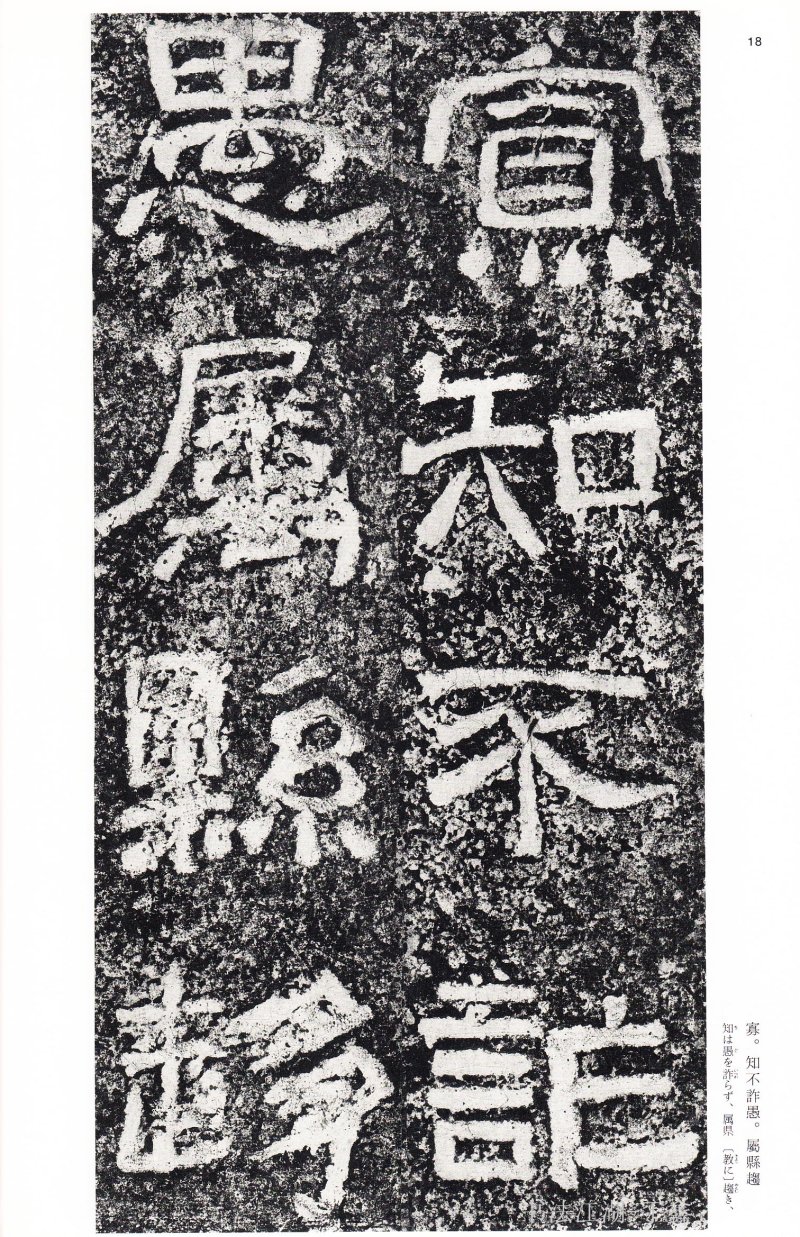 18
寡知不詐
愚屬縣趨
寡。知不詐愚。屬縣趨
知は愚を詐らず、属県〔教に〕趨き、
书法江湖